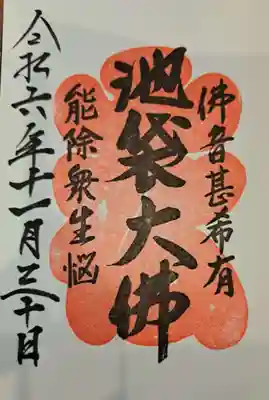 佛音甚希有
池袋大佛
能除衆生悩
令和六年十一月三十日